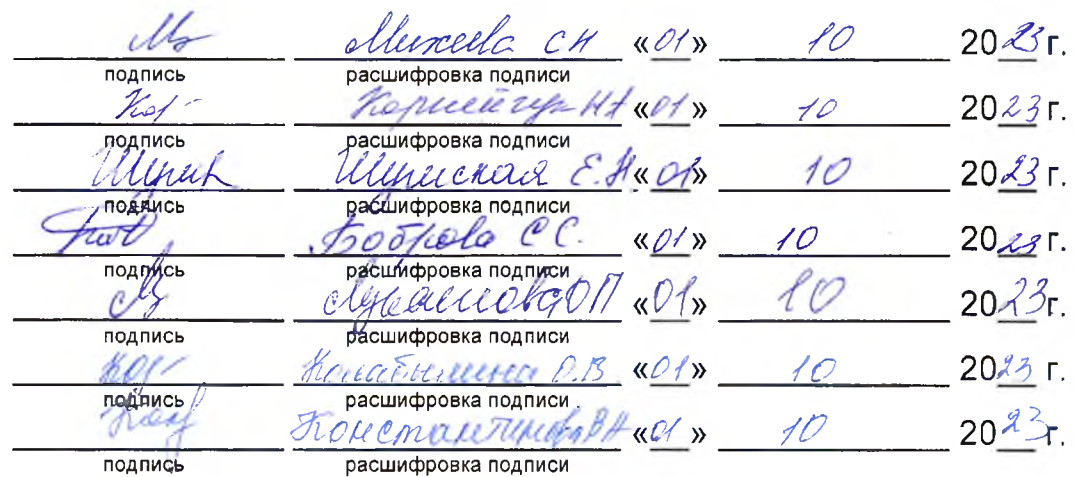 Михеева СН «01» 10 2023 г.
подпись расшифровка подписи
Корнейчук НА «01» 10 2023 г.
подпись расшифровка подписи
Шумская Е.Н «01» 10 2023 г.
подпись расшифровка подписи
Боброва С С. «01» 10 2023 г.
подпись расшифровка подписи
ОП «01» 10 2023 г.
подпись расшифровка подписи
О.В. «01» 10 2023 г.
подпись расшифровка подписи
Константинова ВА «01» 10 2023 г.
подпись расшифровка подписи